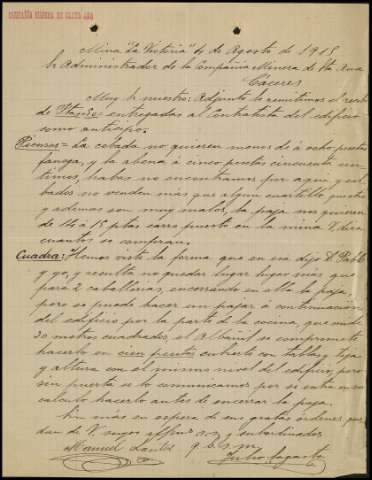 COMPAÑÍA MINERA DE SANTA ANA
Mina "La Victoria" 4 de Agosto de 1918
Sr Administrador de la Compañia Minera de Sta Ana
Cáceres
Muy Sr nuestro: Adjunto le remitimos el recibo
de Ptas 50 entregadas al Contratista del edificio
como anticipo.
Piensos = La cebada no quieren menos de á ocho pesetas
fanega, y la abena á cinco pesetas cincuenta cen-
timos, habas no encontramos por aqui y sal-
bados no venden mas que algun cuartillo suelto
y ademas son muy malos, la paja nos quieren
de 14 á 15 ptas carro puesto en la mina V. dira
cuantos se compran.
Cuadra: Hemos visto la forma que en esa dijo D. Pablo
y yo, y resulta no quedar lugar sigas más que
para 2 caballerias, encerrando en ella la paja,
pero se puede hacer un pajar á continuación
del edificio por la parte de la cocina, que mide
30 metros cuadrados, el Albañil se compromete
hacerlo en cien pesetas cubierto con tablas y teja
y altura con el mismo nivel del edificio, pero
sin puerta se lo comunicamos por si entra en su
calculo hacerlo antes de encerrar la paja.
Sin más en espera de sus gratas ordenes, que-
dan de V. suyos affmos s.s. y subordinados
q.e.s.m.
Manuel Julio Sagasta